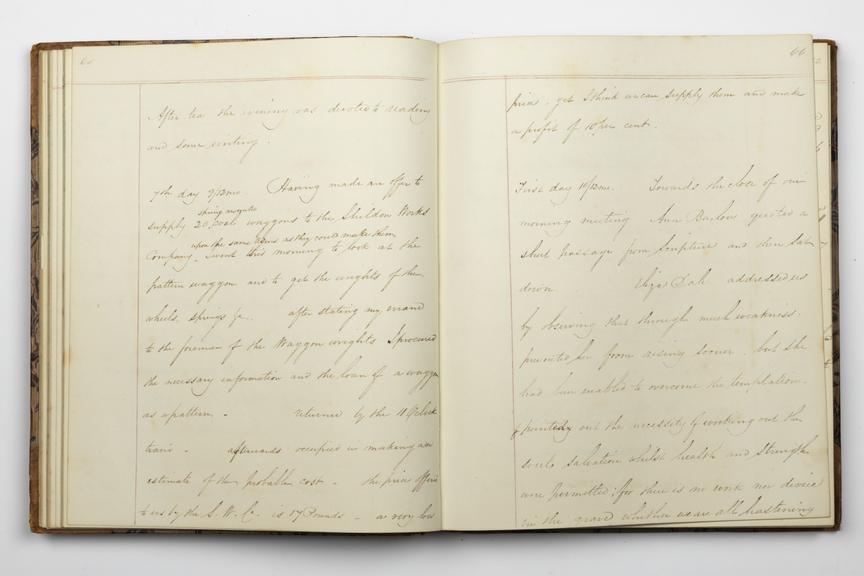 After tea the evening was devoted to reading
and some writing.
7th day 9/12mo. Having made an offer to
supply 20 coal waggons to the Shildon Works
Company, upon the same terms as they could make them
I went this morning to look at the
pattern waggon and to get the weights of the
wheels, springs &c. after stating my errand
to the foreman of the Waggon wrights I procured
the necessary information and the loan of a waggon
as a pattern - returned by the 11 O'clock
train - afterwards occupied in making an
estimate of the probable cost - the price offered
to us by the S. W. Co. is 17 Pounds - a very low
66
price. yet I think we can supply them and make
a profit of 10 per cent.
First day 10/12mo. Towards the close of our
morning meeting Ann Barlow quoted a
short passage from Scripture and then sat
down Eliza Dale addressed us
by observing that through much weakness
prevented her from rising sooner. but she
had been enabled to overcome the temptation.
pointedly out the necessity of working out the
souls salvation whilst health and strength
were permitted: for there is no work nor device
in the grave whither we are all hastening